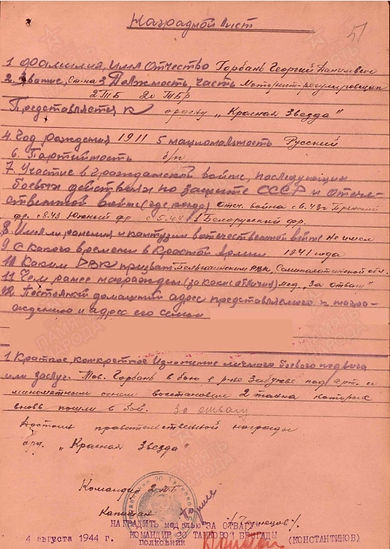 Наградной лист
51
1 Фамилия, Имя Отчество Горбань Георгий
2. Звание, Ст-на 3 Должность, часть Моторист-регулировщик
2 ТБ 20 ТБР
Представляется к ордену „Красная Звезда“
4. Год рождения 1911 5 национальность Русский
6. Партийность б/п
7. Участие в гражданской войне, последующих
боевых действиях по защите СССР и Отече-
ственной войне (где когда) Отеч. война с 6.43г Брянский
фр с 8.43 Южный фр 5.44 1 Белорусский фр.
8. Имел ли ранения и контузии в отечественной войне Не имел
9. С какого времени в Красной армии 1941 года
10 Каким РВК призван РВК, Семипалатинской обл.
11 Чем ранее награжден (за какие отличия) мед. „За отвагу“
12. Постоянный домашний адрес представляемого к награ-
ждению и адрес его семьи
1 Краткое конкретное изложение личного боевого подвига
или заслуг. Тов. Горбань в бою в р-не Забужье под арт. и
минометным огнем восстановил 2 танка которые
вновь пошли в бой. За отвагу
Достоин правительственной награды
орд. „Красная Звезда“
Командир 2 ТБ
Капитан /Кузнецов/.
НАГРАДИТЬ медалью „ЗА ОТВАГУ“
КОМАНДИР 20 ТАНКОВОЙ БРИГАДЫ
4 августа 1944 г. ПОЛКОВНИК (КОНСТАНТИНОВ)